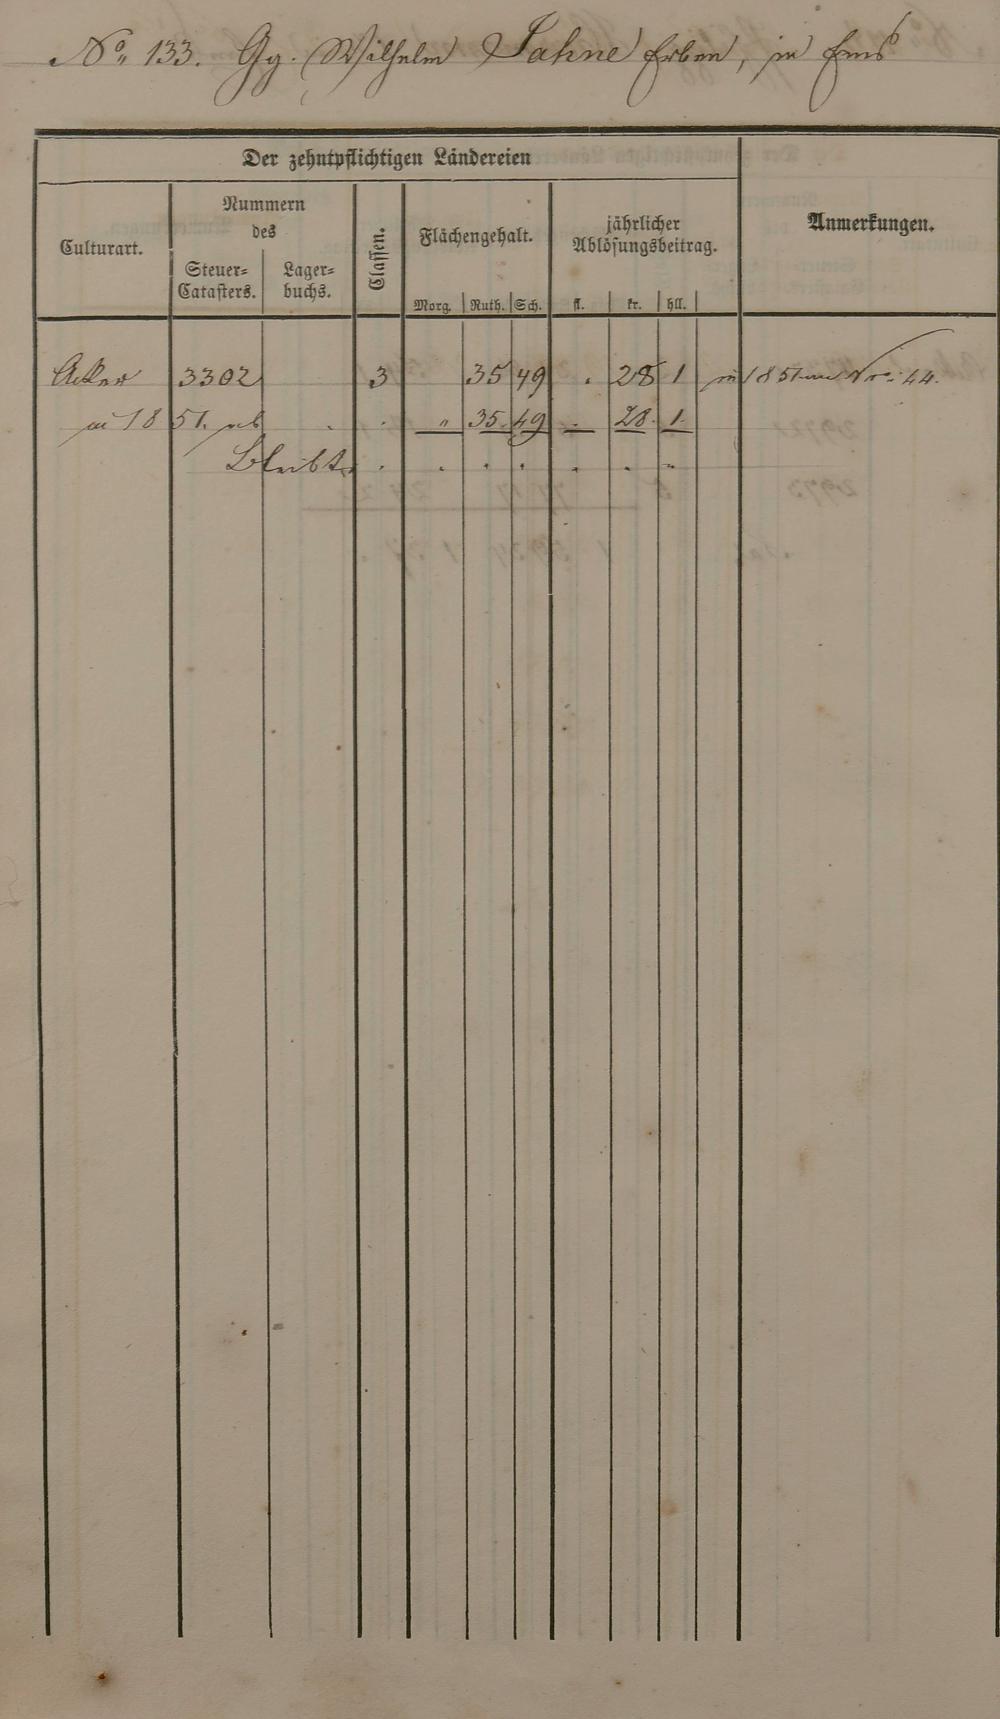 No. 133. Gg. Wilhelm Jahne Erben, in Ems
Der zehntpflichtigen Ländereien
Culturart.
Nummern
des
Steuer=
Catasters.
Lager=
buchs.
Classen.
Flächengehalt.
Morg. Ruth. Sch.
jährlicher
Ablösungsbeitrag.
fl. kr. hll.
Anmerkungen.
Acker 3302 3 35 49 . 28 1 in 1851 an Nro. 44.
in 1851. ab . . . " 35. 49 . 28. 1.
Bleibt . . . . . . . "